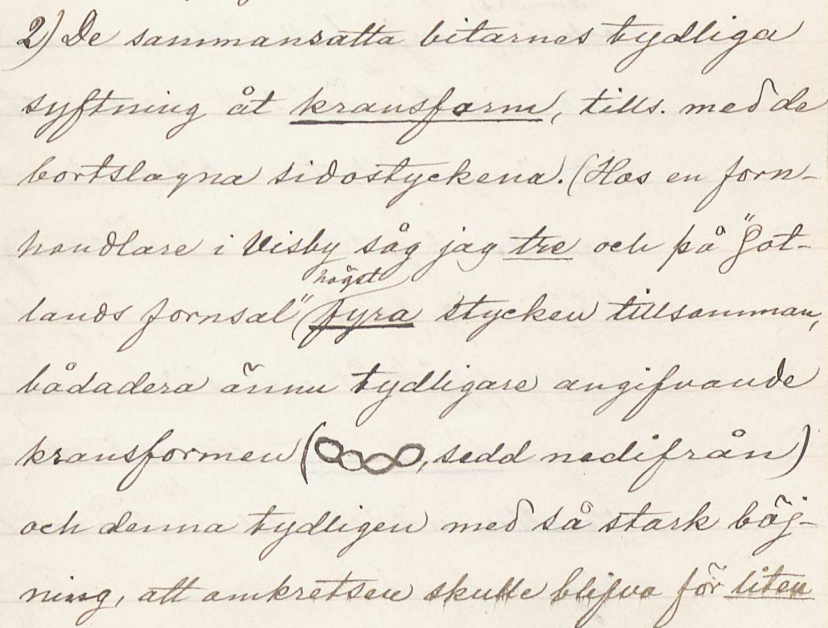 2) De sammansatta bitarnes tydliga
syftning åt kransform, tills. med de
bortslagna sidostyckena. (Hos en forn-
handlare i Visby såg jag tre och på "Got-
högst
lands fornsal" fyra stycken tillsamman,
bådadera ännu tydligare angifvande
kransformen (, sedd nedifrån)
och denna tydligen med så stark böj-
ning, att omkretsen skulle blifva för liten